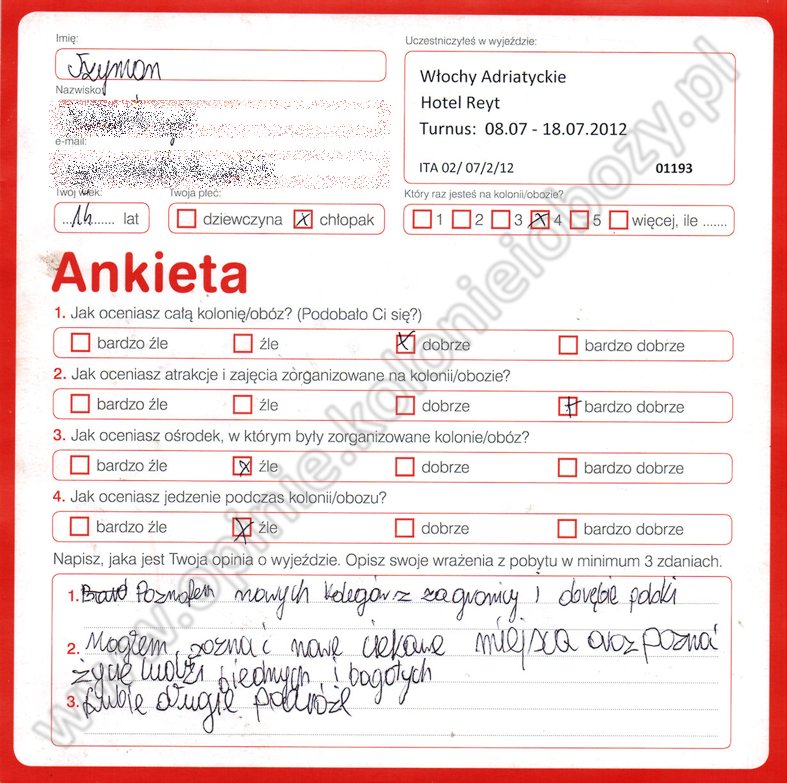 Imię:
Szymon
Uczestniczyłeś w wyjeździe:
Włochy Adriatyckie
Hotel Reyt
Turnus: 08.07 - 18.07.2012
ITA 02/ 07/2/12 01193
Nazwisko:
e-mail:
Twój wiek:
14 lat
Twoja płeć:
dziewczyna x chłopak
Który raz jesteś na kolonii/obozie?
1 2 3 x 4 5 więcej, ile .......
Ankieta
1. Jak oceniasz całą kolonię/obóz? (Podobało Ci się?)
bardzo źle źle x dobrze bardzo dobrze
2. Jak oceniasz atrakcje i zajęcia zorganizowane na kolonii/obozie?
bardzo źle źle dobrze x bardzo dobrze
3. Jak oceniasz ośrodek, w którym były zorganizowane kolonie/obóz?
bardzo źle x źle dobrze bardzo dobrze
4. Jak oceniasz jedzenie podczas kolonii/obozu?
bardzo źle x źle dobrze bardzo dobrze
Napisz, jaka jest Twoja opinia o wyjeździe. Opisz swoje wrażenia z pobytu w minimum 3 zdaniach.
1. Poznałem nowych kolegów z zagranicy i
2. Mogłem poznać nowe ciekawe miejsca oraz poznać
życie ludzi biednych i bogatych
3. Lubię długie podróże
www.opinie.kolonieiobozy.pl